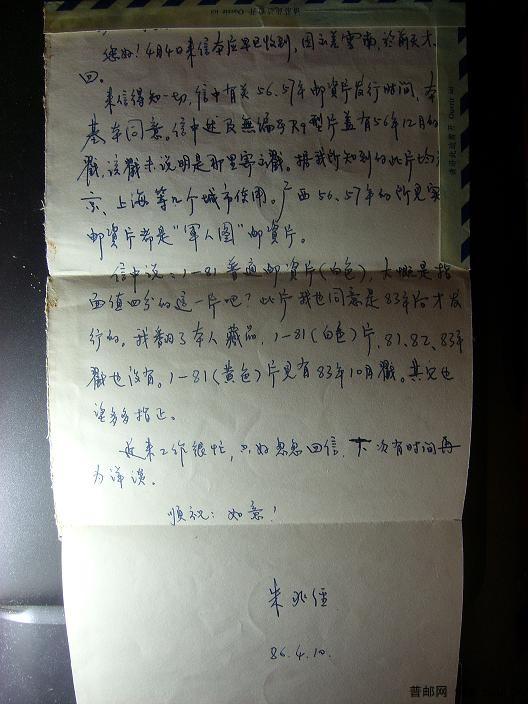 您好！4月4日来信本应早已收到，因出差雲南，於前天才
四。
来信得知一切，信中有关56.57年邮資片发行时间，本
基本同意。信中述及無编号R9型片盖有56年12月的
戳，该戳未说明是那里寄之戳。据我所知到的此片均
京、上海等几个城市使用。广西56、57年的所见实
邮資片都是“軍人图”邮資片。
信中说：1—81普通邮資片（白色），大概是指
面值四分的这一片吧？此片我也同意是83年后才发
行的，我翻了本人藏品，1—81（白色）片，81、82、83年
戳也没有。1—81（黄色）片见有83年10月戳。其它也
望多多指正。
近来工作很忙，只好怱怱回信，下次有时间再
为详谈。
順祝：如意！
朱
86.4.10.
普邮网